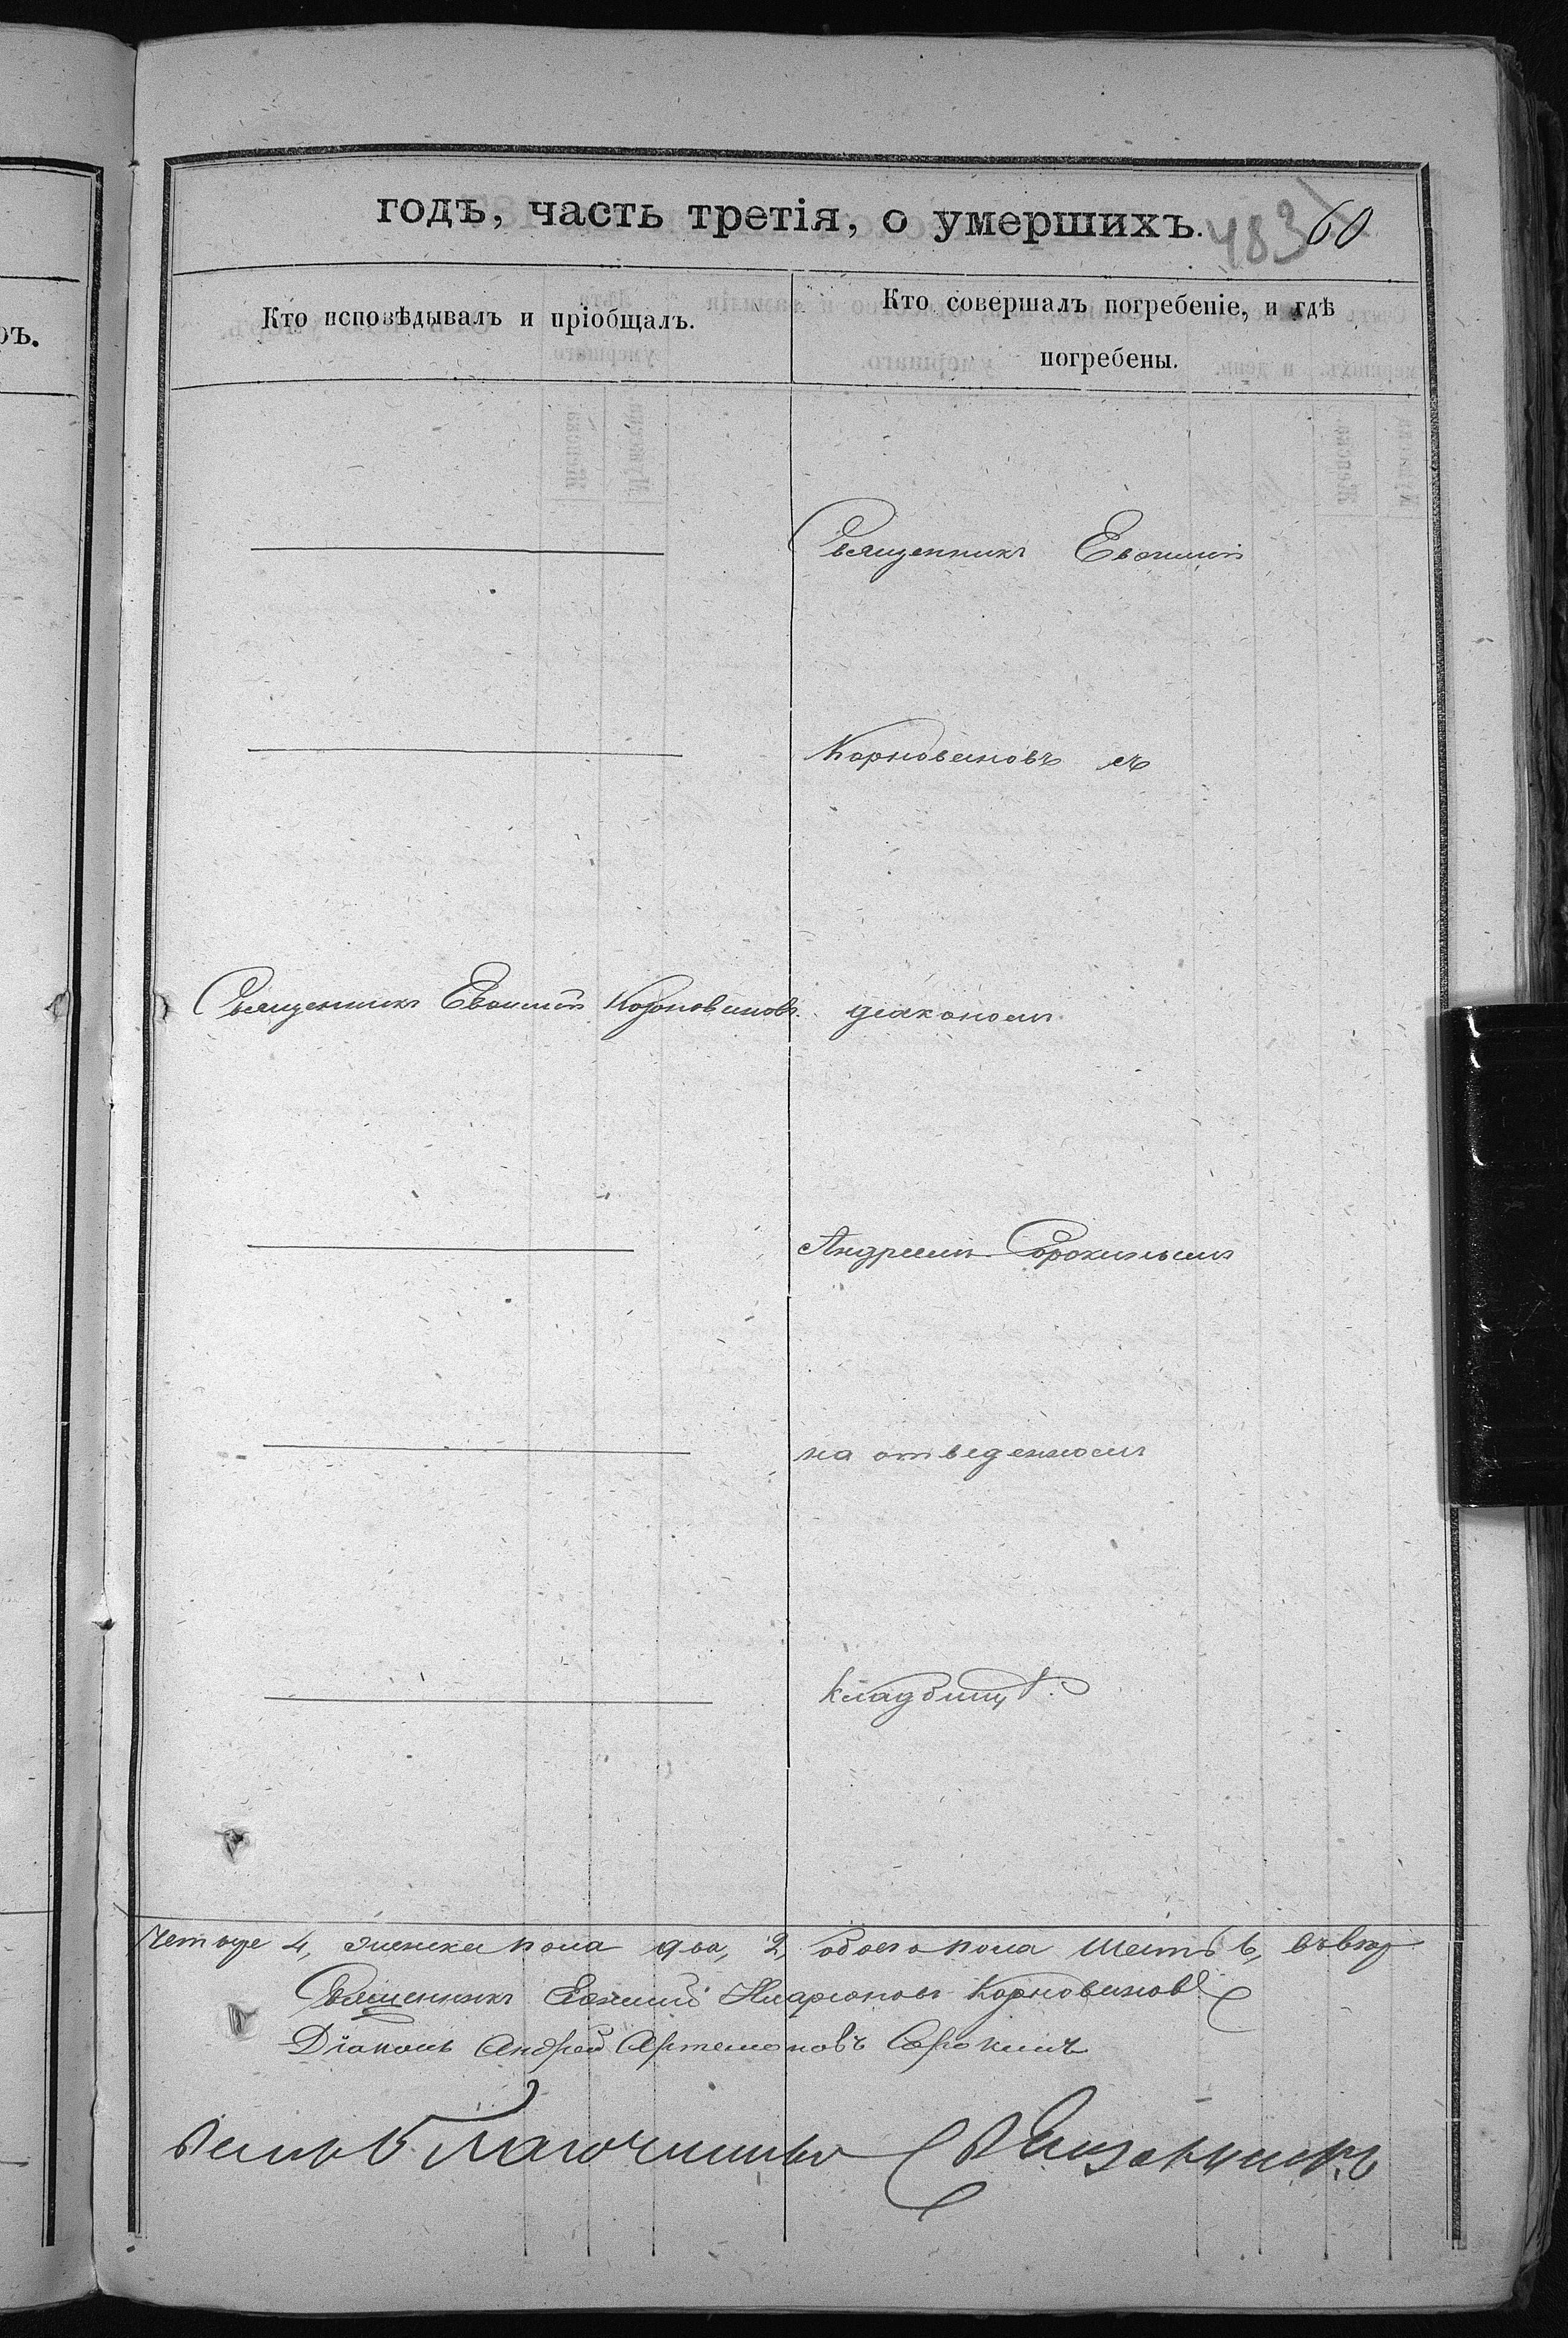 годъ, часть третія, о умершихъ. 483 60
Кто исповѣдывалъ и пріобщалъ.
Кто совершалъ погребеніе, и гдѣ
погребены.
ръ.
Священникъ Евѳимій
Корновиновъ съ
Священникъ Евѳимій Корновиновъ.
діакономъ
Андреемъ Сорокинымъ
на отведенномъ
кладбищѣ.
Четыре 4, женска пола два, 2, обоего пола шесть 6,
Священникъ Евѳимій Иларіоновъ Корновиновъ
Діаконъ Андрей Артемоновъ Сорокинъ
Благочинный Священникъ